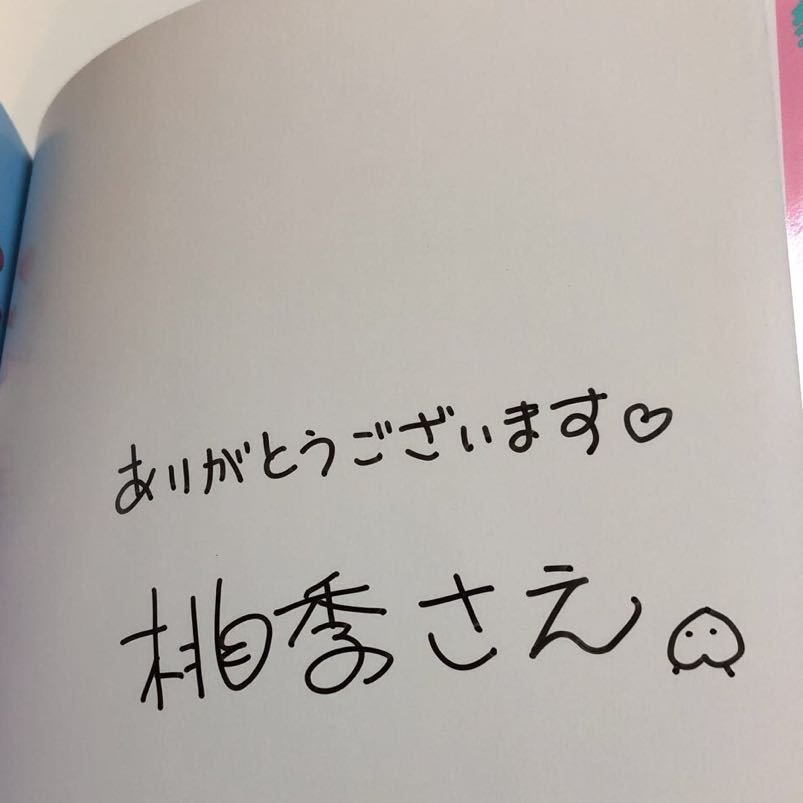 ありがとうございます♡
桃季さえ